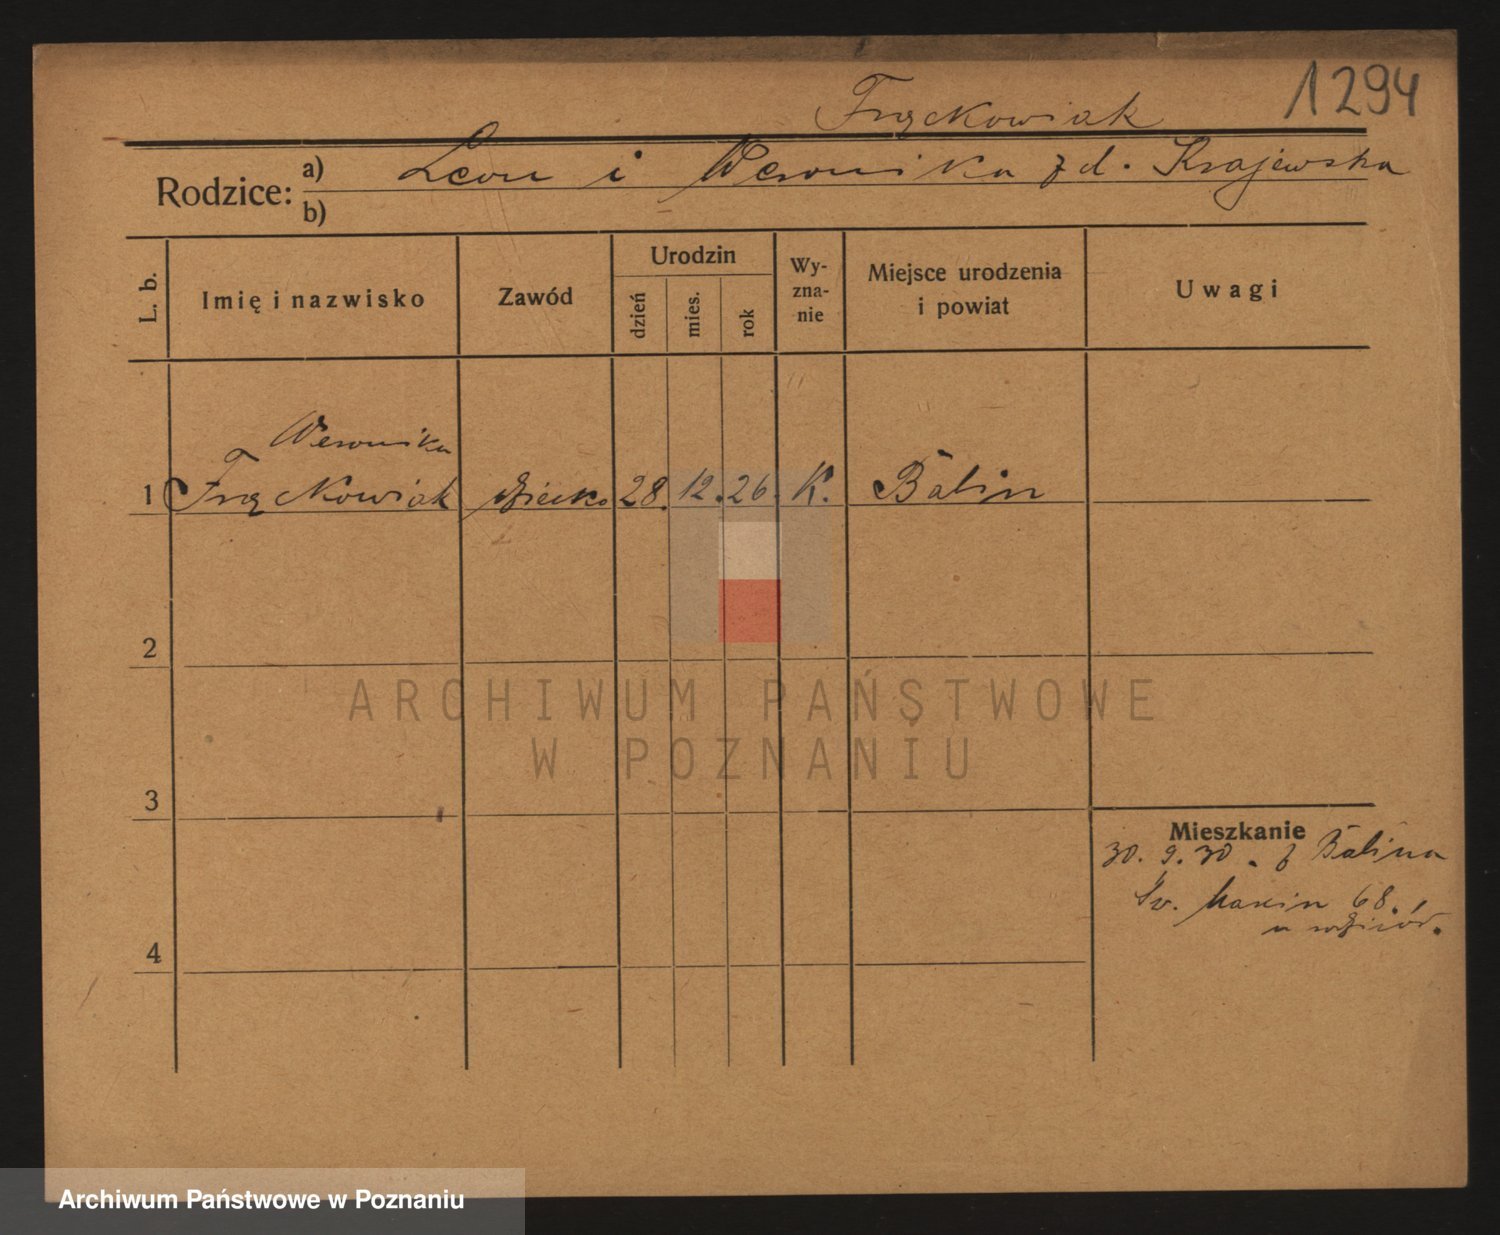 1294
Frąckowiak
Rodzice: a) Leon i Weronika z d. Krajewska
b)
L. b.
Imię i nazwisko
Zawód
Urodzin
dzień
mies.
rok
Wy-
zna-
nie
Miejsce urodzenia
i powiat
Uwagi
Weronika
1 Frąckowiak dziecko 28. 12. 26. K. Balin
2
3
4
Mieszkanie
30. 9. 30. z Balina
Św. Marcin 68.
u rodziców.
ARCHIWUM PAŃSTWOWE
W POZNANIU
Archiwum Państwowe w Poznaniu